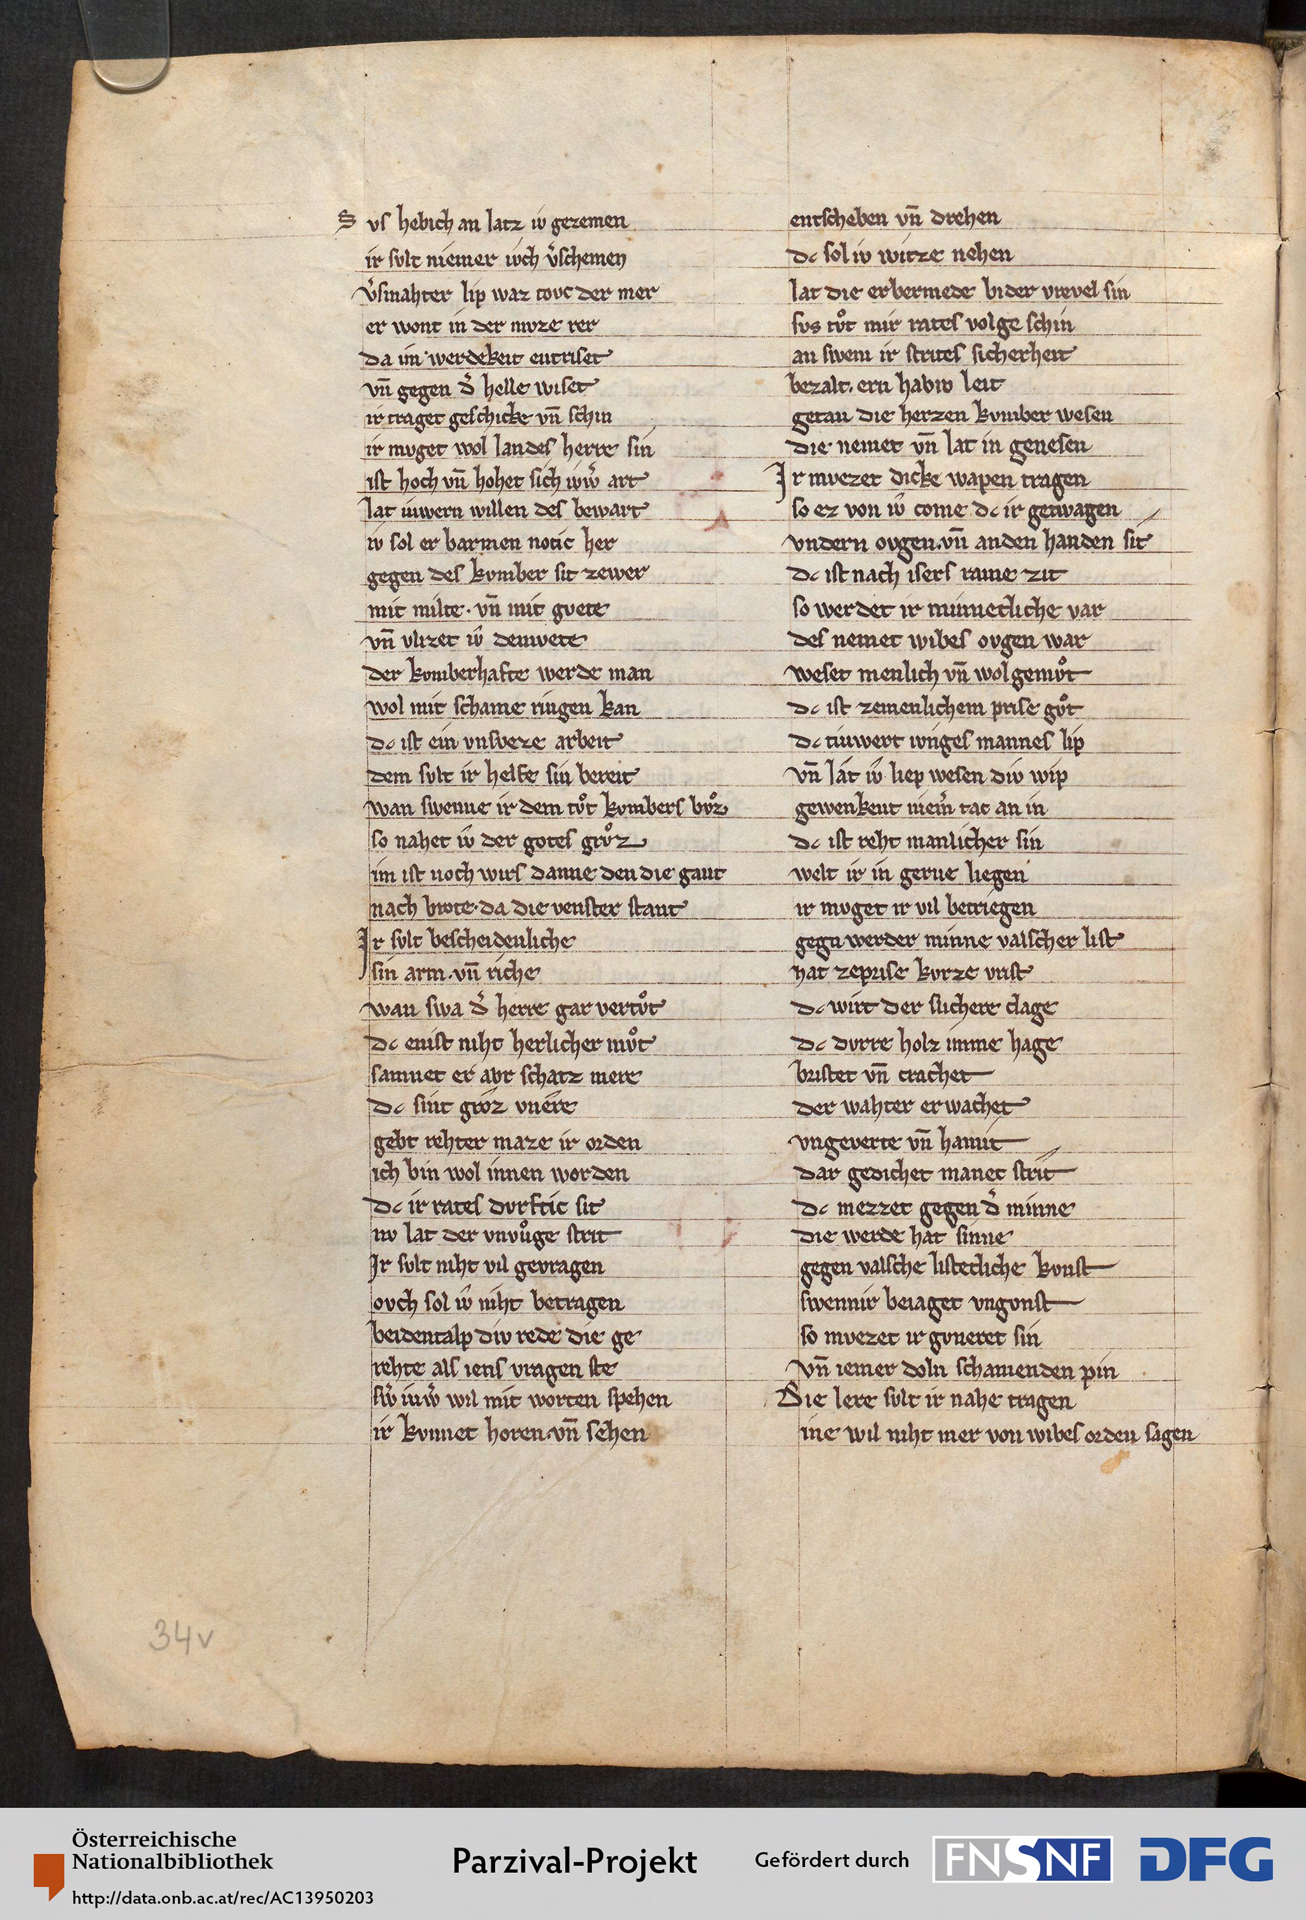 Svs hebich an latz iv gezemen
ir svlt niemer ivch v̾schemen
v̾smahter lip waz tovc der mer
er wont in der mvze rer
da im werdekeit entriset
vn̄ gegen d̾ helle wiset
ir traget geschicke vn̄ schin
ir mvget wol landes herre sin
ist hoch vn̄ hohet sich iwͣ art
lat iuwern willen des bewart
iv sol er barmen notic her
gegen des kvmber sit zewer
mit milte · vn̄ mit gvete
vn̄ vlizet iv̂ demvete
der kvmberhafte werde man
wol mit schame ringen kan
dc ist ein vnsveze arbeit
dem svlt ir helfe sin bereit
wan swenne ir dem tvͦt kvmbers bvͦz
so nahet iv̂ der gotes grvͦz
im ist noch wirs danne den die gant
nach brote · da die venster stant
Ir svlt bescheidenliche
sin arm · vn̄ riche
wan swa d̾ herre gar vertvͦt
dc enist niht herlicher mvͦt
samnet er abr schatz mere
dc sint groz vnere
gebt rehter maze ir orden
ich bin wol innen worden
dc ir rates dvrftic sit
nv lat der vnvͦge strit
Ir svlt niht vil gevragen
ovch sol iv̂ niht betragen
beidentalp div rede die ge
rehte als iens vragen ste
sw̾ iuw̾ wil mit worten spehen
ir kvnnet horen · vn̄ sehen
entscheben vn̄ drehen
dc sol iv witze nehen
lat die erbermede bider vrevel sin
svs tvͦt mir rates volge schin
an swem ir strites sicherheit
bezalt · ern habiv leit
getan die herzen kvmber wesen
die nemet vn̄ lat in genesen
Ir mvezet dicke wapen tragen
so ez von iv̂ come dc ir getwagen
vndern ovgen · vn̄ anden handen sit
dc ist nach isers rame zit
so werdet ir minnecliche var
des nemet wibes ovgen war
weset menlich vn̄ wol gemvͦt
dc ist zemenlichem prise gvͦt
dc tiuwert ivnges mannes lip
vn̄ lat iv̂ liep wesen div wip
gewenkent niem̾ tac an in
dc ist reht manlicher sin
welt ir in gerne liegen
ir mvget ir vil betriegen
gegn werder minne valscher list
hat zeprise kvrze vrist
dc wirt der slichere clage
dc dvrre holz imme hage
bristet vn̄ crachet
der wahter erwachet
vngeverte vn̄ hamit
dar gedichet manec strit
dc mezzet gegen d̾ minne
die werde hat sinne
gegen valsche listecliche kvnst
swennir beiaget vngvnst
so mvezet ir gvneret sin
vn̄ iemer doln schamenden pin
Die lere svlt ir nahe tragen
ine wil niht mer von wibes orden sagen
34v
Österreichische
Nationalbibliothek
http://data.onb.ac.at/rec/AC13950203
Parzival-Projekt
Gefördert durch
FNSNF
DFG